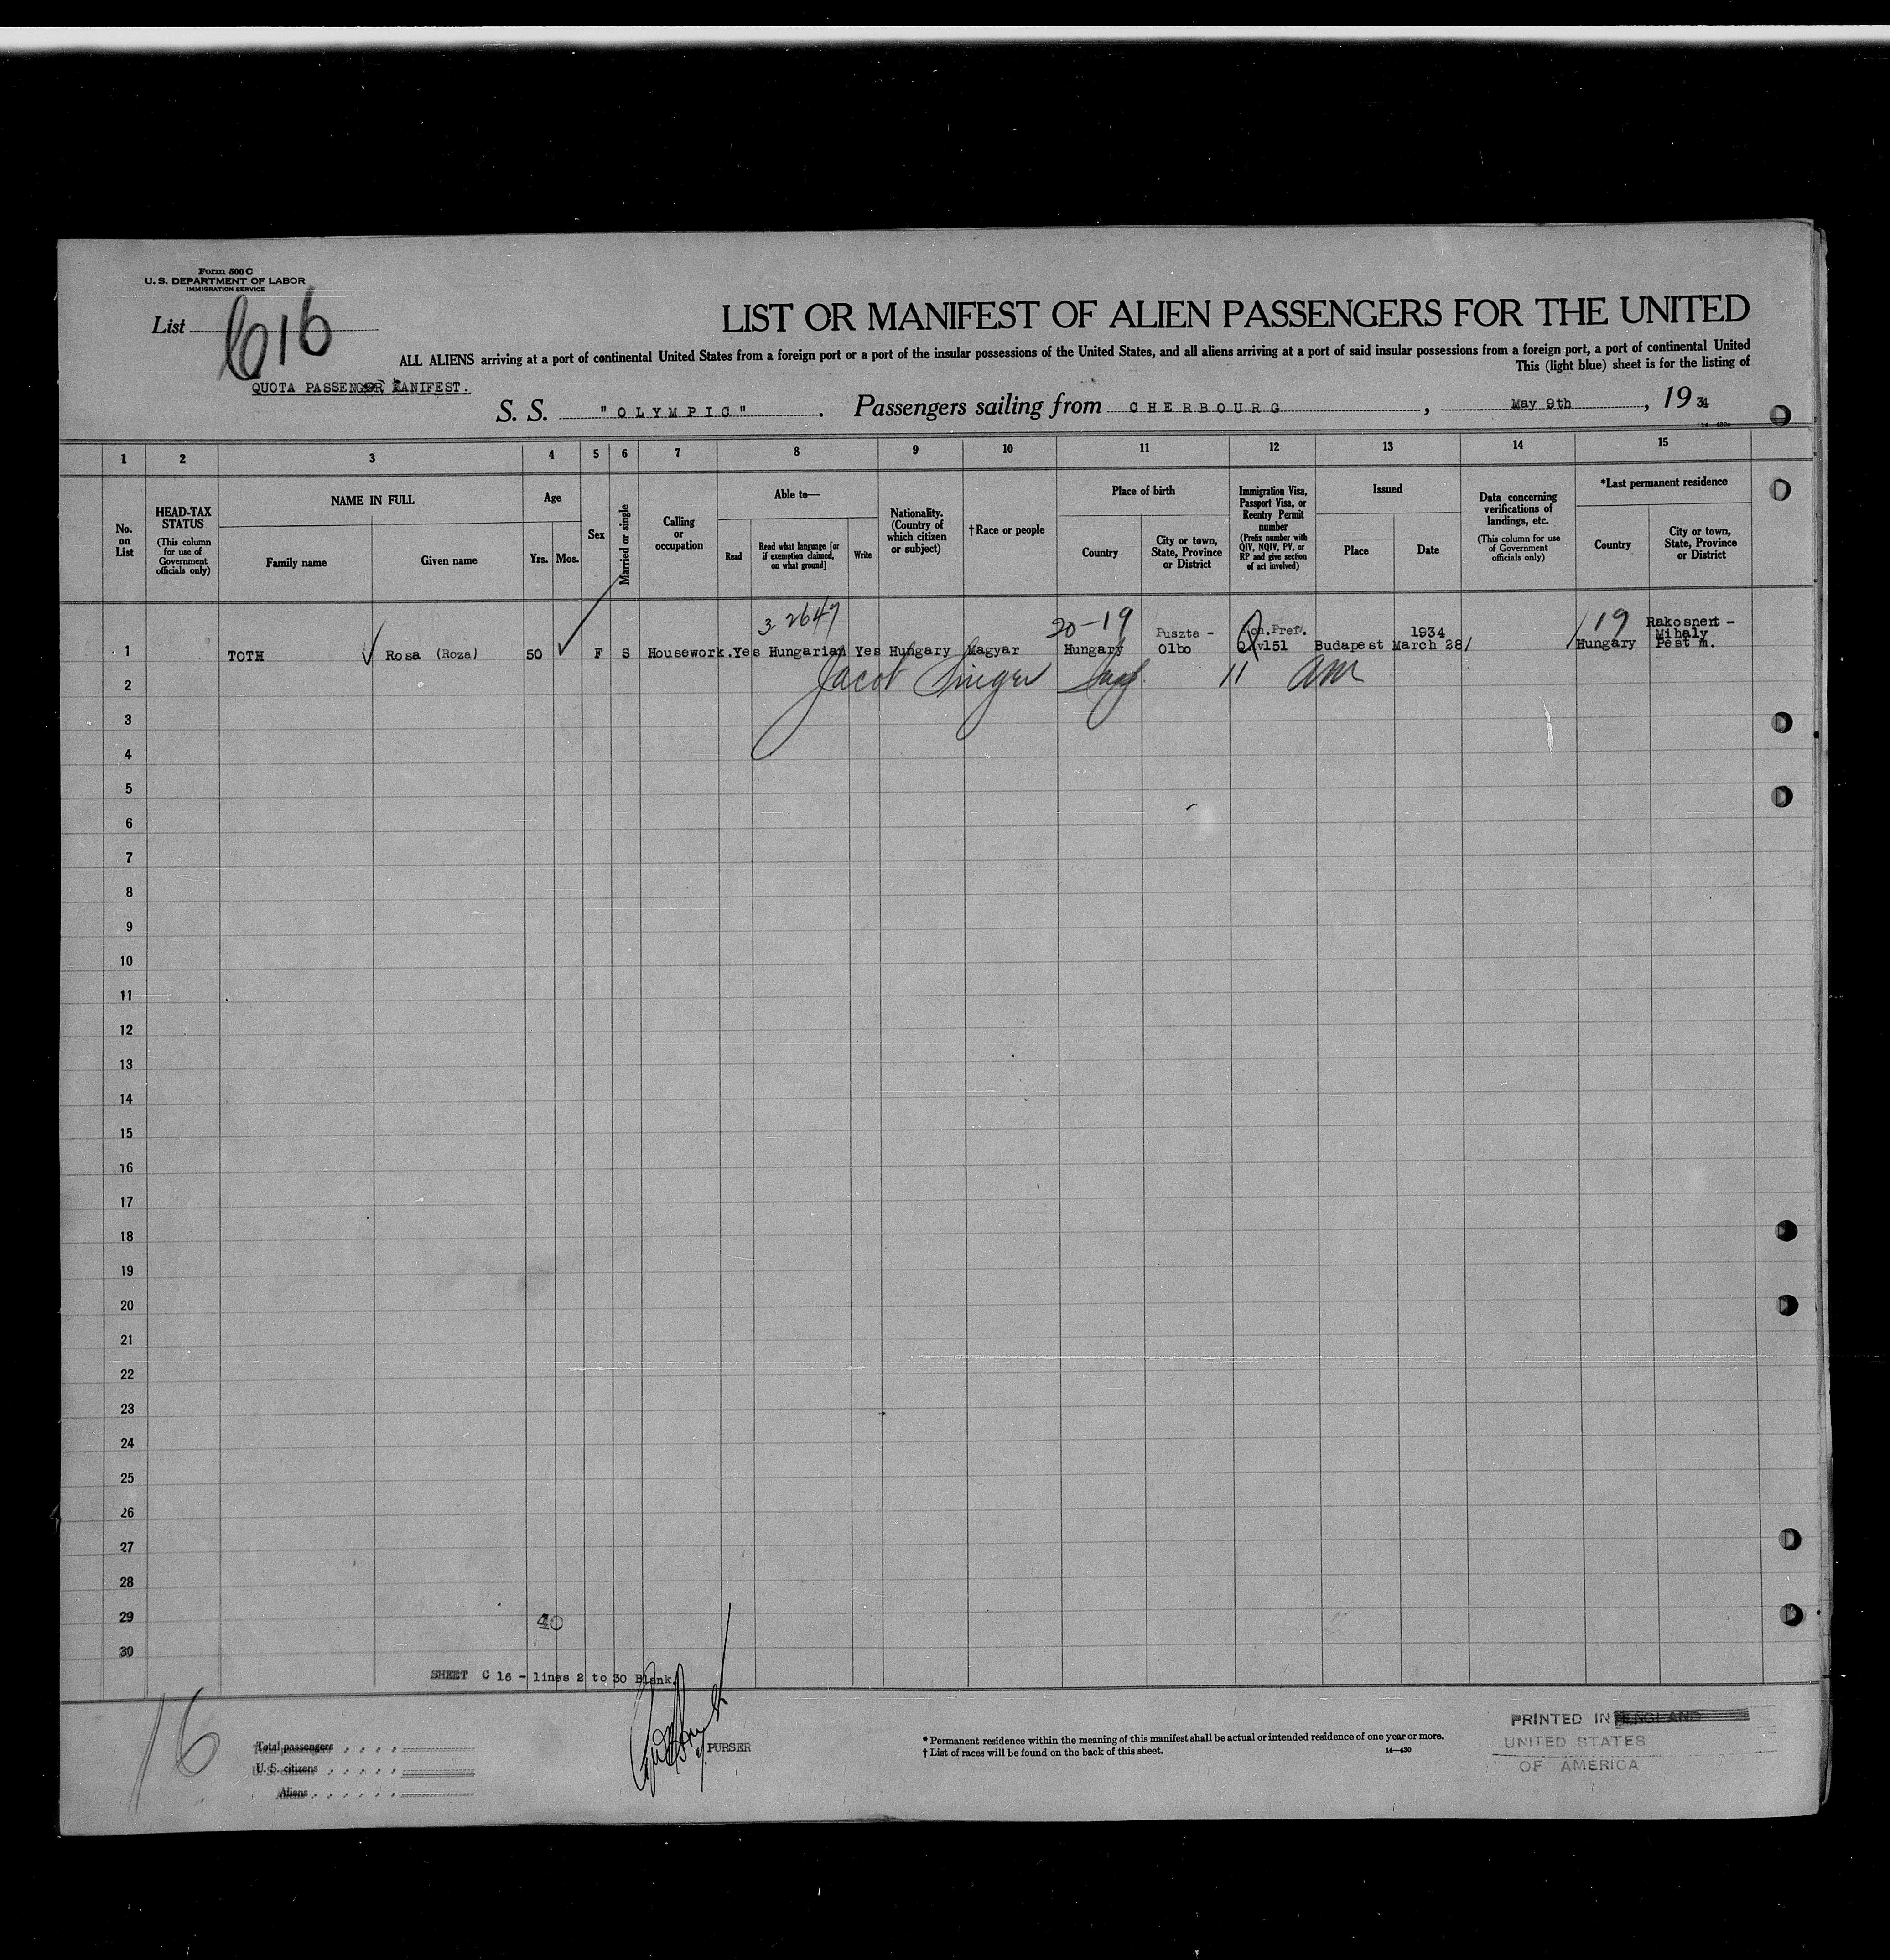 Form 500 C
U. S. DEPARTMENT OF LABOR
IMMIGRATION SERVICE
List C16
LIST OR MANIFEST OF ALIEN PASSENGERS FOR THE UNITED
ALL ALIENS arriving at a port of continental United States from a foreign port or a port of the insular possessions of the United States, and all aliens arriving at a port of said insular possessions from a foreign port, a port of continental United
This (light blue) sheet is for the listing of
QUOTA PASSENGER MANIFEST.
S. S. "OLYMPIC" . Passengers sailing from CHERBOURG , May 9th , 19 34
1 2 3 4 5 6 7 8 9 10 11 12 13 14 15
No. on List
HEAD-TAX STATUS (This column for use of Government officials only)
NAME IN FULL
Family name Given name
Age
Yrs. Mos.
Sex
Married or single
Calling or occupation
Able to—
Read
Read what language [or if exemption claimed, on what ground]
Write
Nationality. (Country of which citizen or subject)
†Race or people
Place of birth
Country
City or town, State, Province or District
Immigration Visa, Passport Visa, or Reentry Permit number (Prefix number with QIV, NQIV, PV, or RP and give section of act involved)
Issued
Place Date
Data concerning verifications of landings, etc. (This column for use of Government officials only)
*Last permanent residence
Country
City or town, State, Province or District
3 2647 20-19 19
1 TOTH Rosa (Roza) 50 F S Housework. Yes Hungarian Yes Hungary Magyar Hungary Puszta - Olbo Non.Pref. Qiv151 Budapest 1934 March 28/ Hungary Rakosnert - Mihaly Pest m.
Jacob Singer Insp. 11 am
2
3
4
5
6
7
8
9
10
11
12
13
14
15
16
17
18
19
20
21
22
23
24
25
26
27
28
29 40
30
SHEET C 16 - lines 2 to 30 Blank.
16
Total passengers
U. S. citizens
Aliens
PURSER
* Permanent residence within the meaning of this manifest shall be actual or intended residence of one year or more.
† List of races will be found on the back of this sheet. 14—430
PRINTED IN ENGLAND
UNITED STATES
OF AMERICA